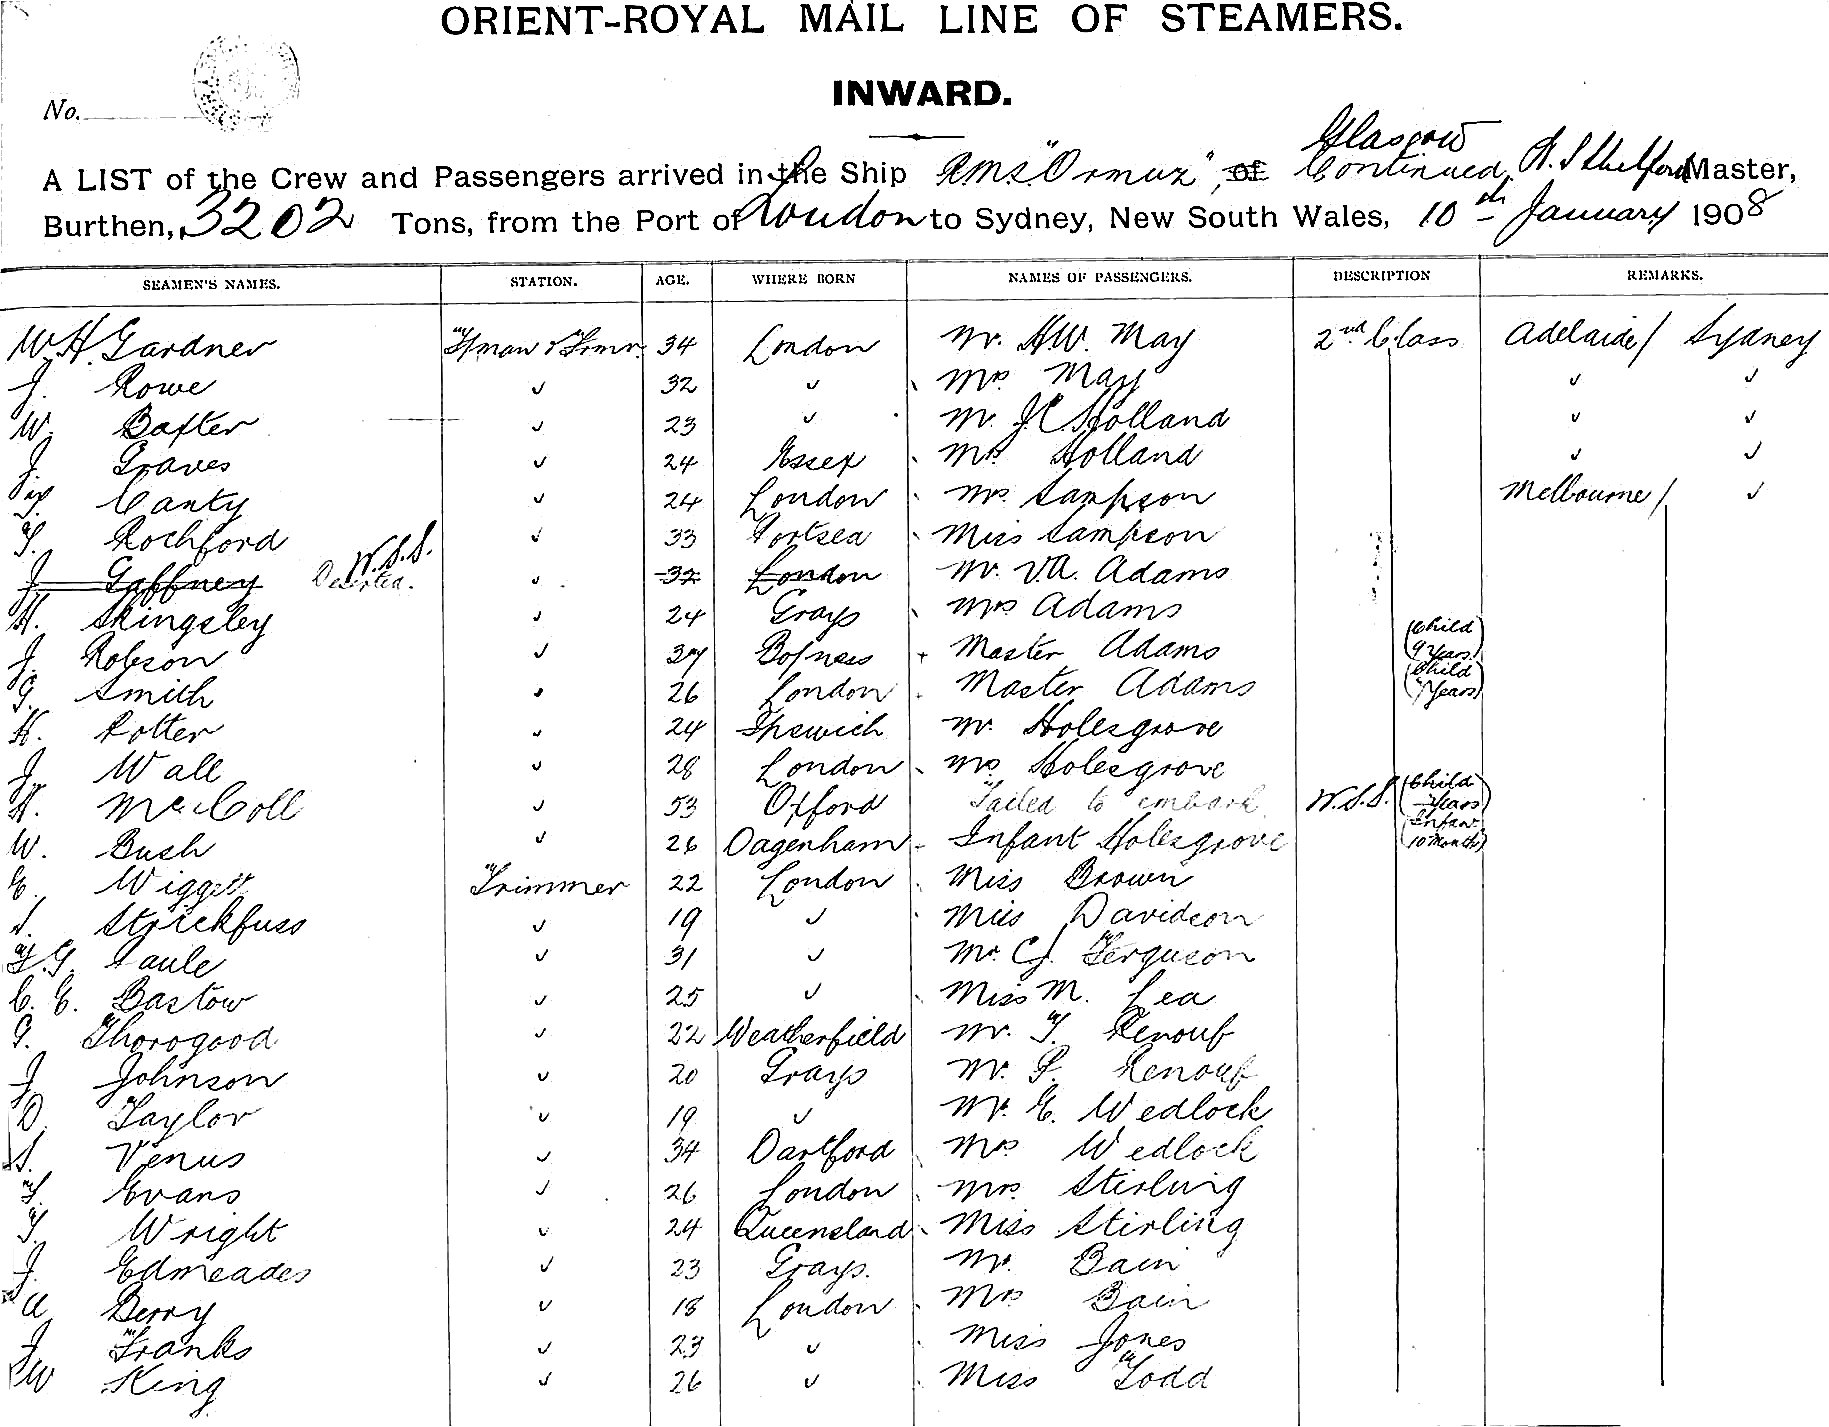 ORIENT-ROYAL MAIL LINE OF STEAMERS.
INWARD.
No.
Glasgow
A LIST of the Crew and Passengers arrived in the Ship RMS "Ormuz", of Continued, A. J Shelford Master,
Burthen, 3202 Tons, from the Port of London to Sydney, New South Wales, 10th January 1908
SEAMEN'S NAMES. STATION. AGE. WHERE BORN NAMES OF PASSENGERS. DESCRIPTION REMARKS.
W H Gardner F/man & Trmr 34 London Mr. H W. May 2nd Class Adelaide / Sydney
J. Rowe 32 Mrs May
W. Baxter 23 Mr. J C Holland
J. Graves 24 Essex Mrs Holland
T. Canty 24 London Mrs Sampson Melbourne /
T. Rochford 33 Portsea Miss Sampson
J Gaffney Deserted. W.S.S. 32 London Mr. V.A. Adams
H. Skingsley 24 Grays Mrs Adams
J. Robson 37 Bo'ness Master Adams (Child 9 Years)
G. Smith 26 London Master Adams (Child 7 Years)
H. Potter 24 Ipswich Mr. Holesgrove
J. Wall 28 London Mrs Holesgrove
H. McColl 53 Oxford Failed to embark W.S.S. (Child Years)
W. Bush 26 Dagenham Infant Holesgrove (Infant 10 Months)
E. Wiggett Trimmer 22 London Miss Brown
S. Strickfuss 19 Miss Davidson
F. G. Saule 31 Mr. C J. Ferguson
C. E. Bastow 25 Miss M. Lea
G. Thorogood 22 Weatherfield Mr. T. Renouf
J Johnson 20 Grays Mr. P. Renouf
D. Taylor 19 Mr. E. Wedlock
S. Venus 34 Dartford Mrs Wedlock
T. Evans 26 London Mrs Stirling
T. Wright 24 Queensland Miss Stirling
J. Edmeades 23 Grays. Mr. Bain
A Berry 18 London Mrs Bain
J Franks 23 Miss Jones
W King 26 Miss Todd